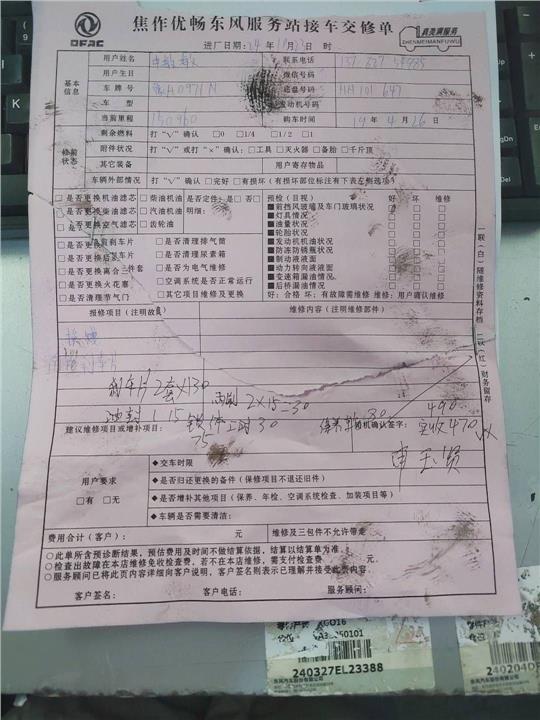 DFAC
焦作优畅东风服务站接车交修单
真美满服务
ZHENMEIMANFUWU
进厂日期:24年 月 日 时
基本信息
用户姓名
联系电话
用户生日
微信号码
车牌号
底盘号码 HH101647
车型
发动机号码
当前里程 150960
购车时间 19年4月26日
修前状态
剩余燃料 打“√”确认 □0 □1/4 □1/2 □1
附件状况 打“√”或打“×”确认:□工具 □灭火器 □备胎 □千斤顶
其它装备
用户寄存物品
车辆外部情况 打“√”确认 □完好 □有损坏(有损坏部位标注有下表左侧选项)
□是否更换机油滤芯 □柴油机油 是否定性:是□ 否□
□是否更换柴油滤芯 □汽油机油 明细:
□是否更换空气滤芯 □齿轮油
预检(目视) 好 坏 维修
■前挡风玻璃及车门玻璃状况
■灯具情况
■油量状况
■轮胎状况
■发动机机油状况
■防冻防锈瓶状况
■制动液液面
■动力转向液液面
■变速箱漏油情况
■后桥漏油情况
好:合格 坏:有故障需维修 维修:用户确认维修
□是否更换前刹车片 □是否清理排气筒
□是否更换后刹车片 □是否清理尿素箱
□是否更换离合三件套 □是否为电气维修
□是否更换火花塞 □空调系统是否正常运行
□是否清理节气门 □其它项目维修及更换
报修项目(注明故障)
维修内容(注明维修部件)
刹车片2套×130
2×15=30
油封 1 15
工时30
75
30
490
实收470
建议维修项目或增补项目:
司机确认签字:
用户要求
□有 □无
◆交车时限
◆是否归还更换的备件(保修项目不退还旧件)
◆是否增补其他项目(保养、年检、空调系统检查、加装项目等)
◆车辆是否需要清洁:
费用合计(客户): 元
维修及三包件不允许带走
○此单所含预诊断结果,预估费用及时间不做结算依据,结算以结算单为准。
○检查出故障在本店维修免收检查费,若不在本店维修,需支付检查费 元。
○服务顾问已将此页内容详细向客户说明,客户签名则表示已理解并接受此页内容。
客户签名: 客户电话: 服务顾问:
一联(白)随维修资料存档 二联(红)财务留存
240327EL23388